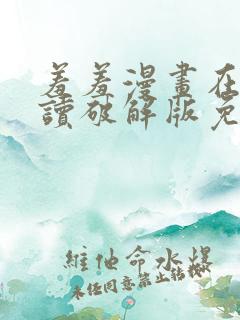 羞羞漫畫在
讀破解版免
維他命水爆
未任同意禁止轉載